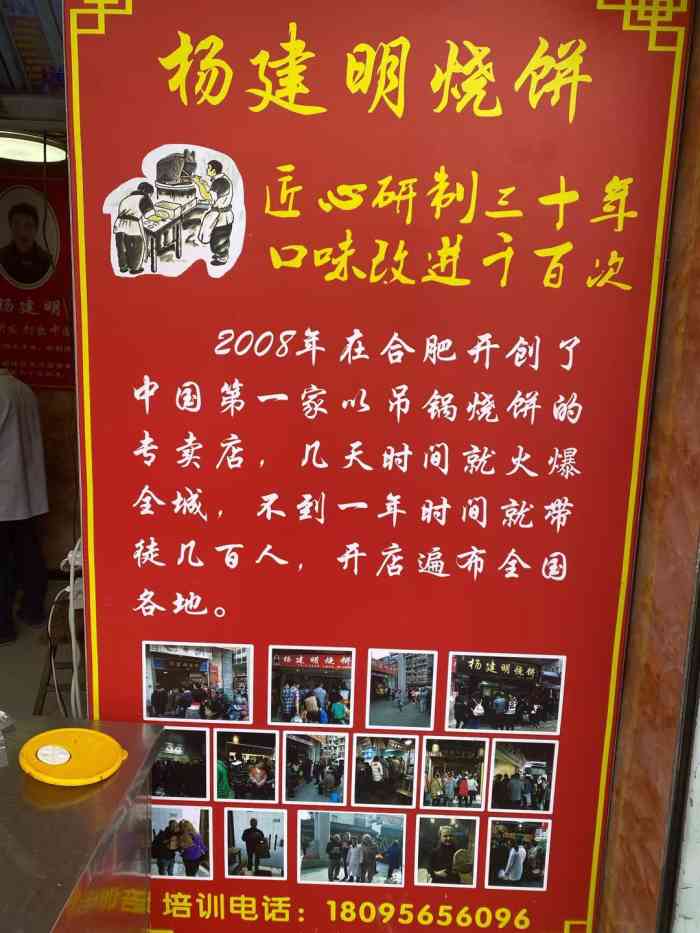 杨建明烧饼
匠心研制三十年
口味改进千百次
2008年在合肥开创了
中国第一家以吊锅烧饼的
专卖店，几天时间就火爆
全城，不到一年时间就带
徒几百人，开店遍布全国
各地。
杨建明烧饼
杨建明烧饼
培训电话：18095656096
杨建明